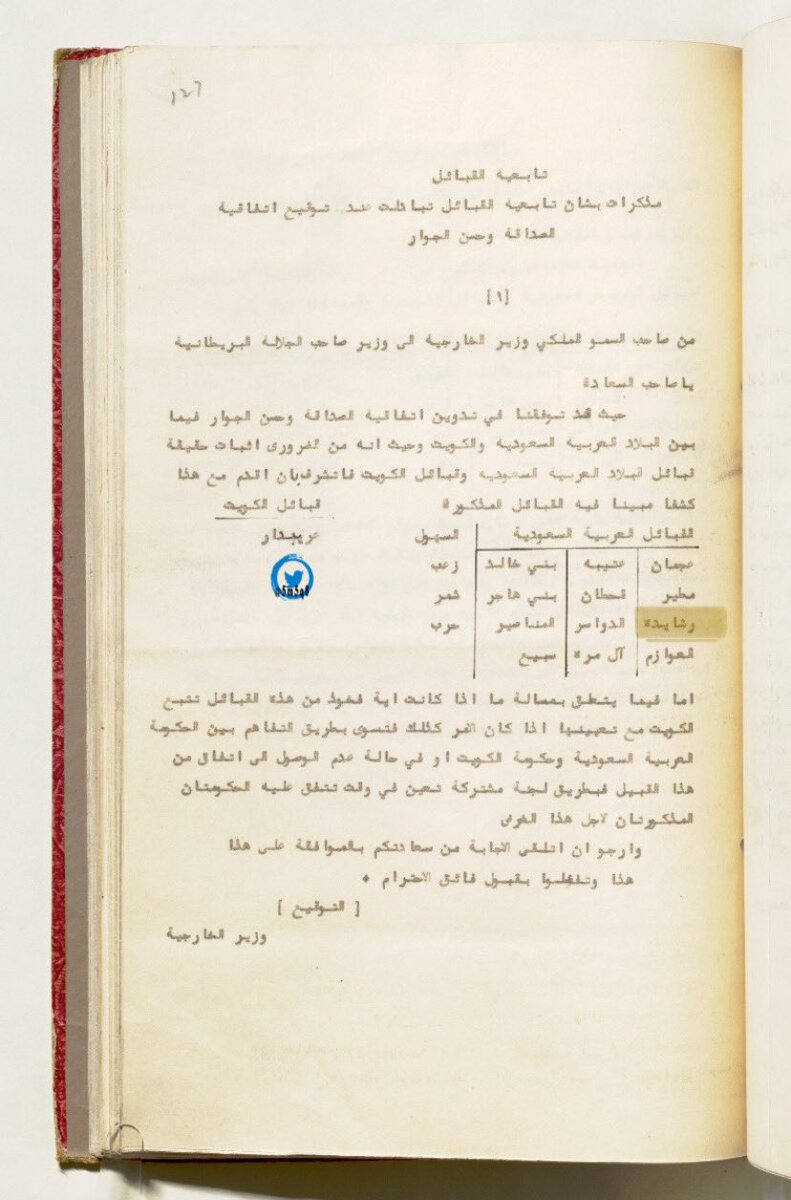 ١٢٦
تابعية القبائل
مذكرات بشان تابعية القبائل تبادلت عند توقيع اتفاقية
الصداقة وحسن الجوار
[١]
من صاحب السمو الملكي وزير الخارجية الى وزير صاحب الجلالة البريطانية
ياصاحب السعادة
حيث قد توفقنا في تدوين اتفاقية الصداقة وحسن الجوار فيما
بين البلاد العربية السعودية والكويت وحيث انه من الضرورى اثبات حقيقة
قبائل البلاد العربية السعودية وقبائل الكويت فاتشرف بان اقدم مع هذا
كشفا مبينا فيه القبائل المذكورة
قبائل الكويت
القبائل العربية السعودية السهول عريبدار
عجمان عتيبه بني خالد زعب
مطير قحطان بني هاجر شمر
رشايدة الدواسر المناصير حرب
العوازم آل مرة سبيع
اما فيما يتعلق بمسالة ما اذا كانت اية فخوذ من هذه القبائل تتبع
الكويت مع تعيينها اذا كان الامر كذلك فتسوى بطريق التفاهم بين الحكومة
العربية السعودية وحكومة الكويت او في حالة عدم الوصول الى اتفاق من
هذا القبيل فبطريق لجنة مشتركة تعين في وقت تتفق عليه الحكومتان
المذكورتان لاجل هذا الغرض
وارجو ان اتلقى الاجابة من سعادتكم بالموافقة على هذا
هذا وتفضلوا بقبول فائق الاحترام *
[ التوقيع ]
وزير الخارجية